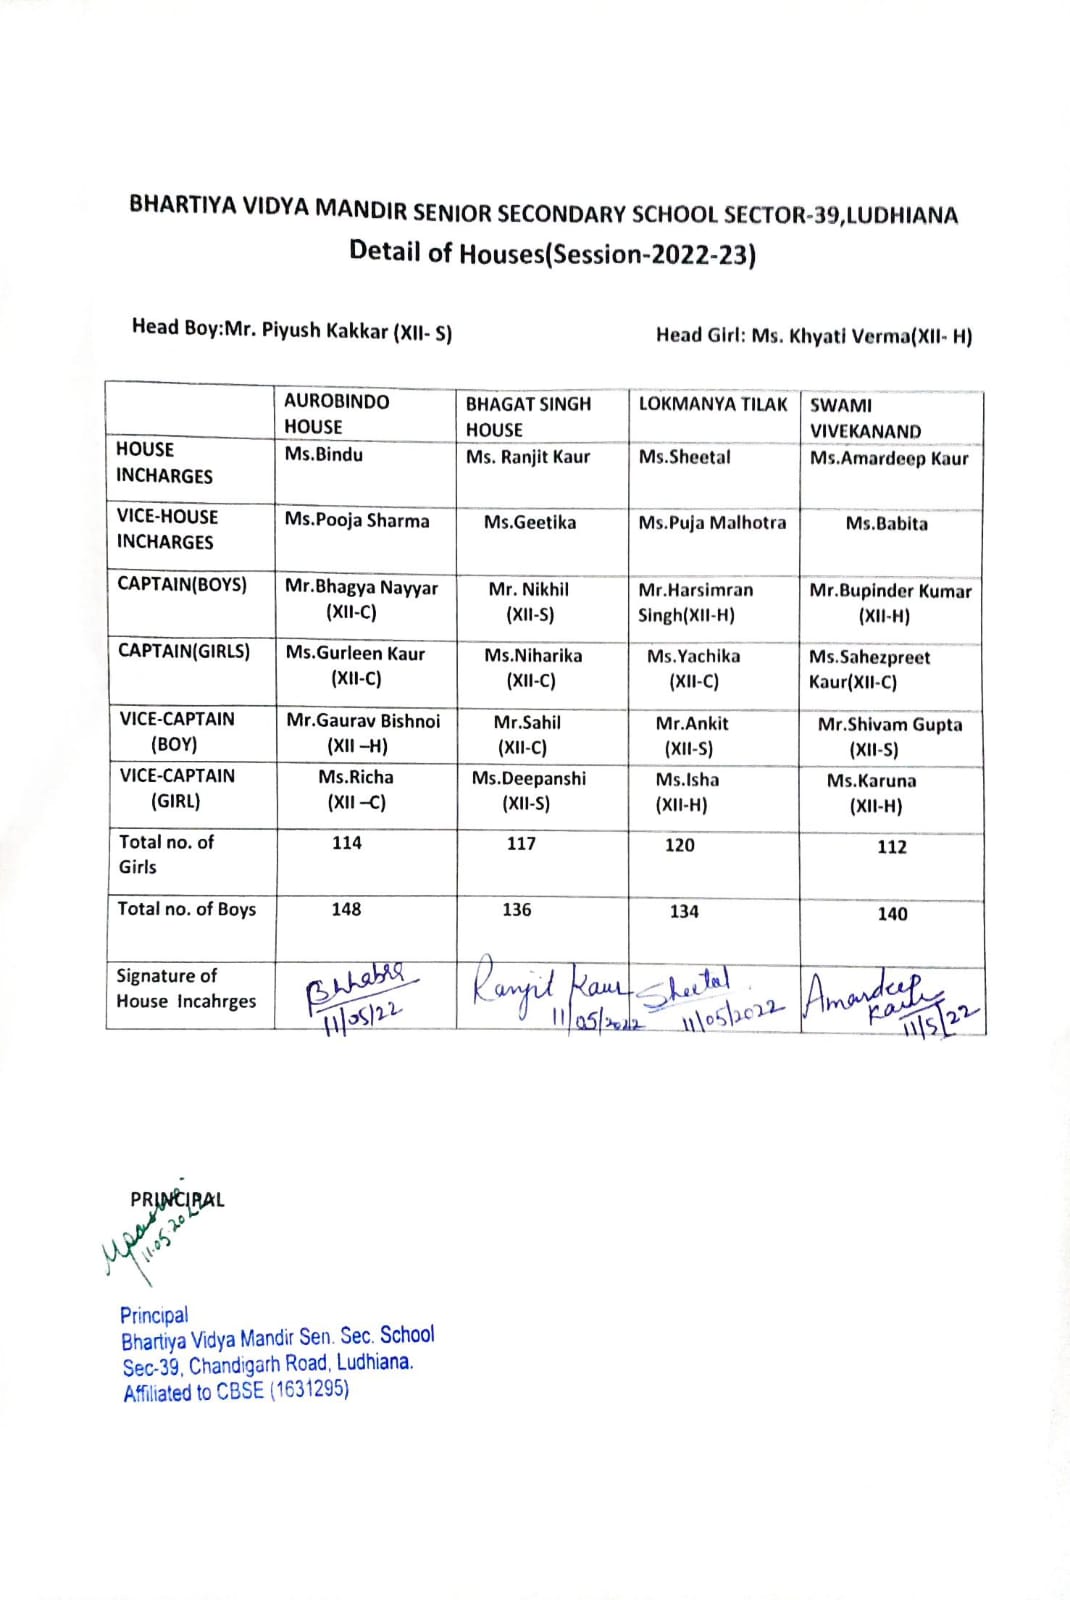 BHARTIYA VIDYA MANDIR SENIOR SECONDARY SCHOOL SECTOR-39,LUDHIANA
Detail of Houses(Session-2022-23)
Head Boy:Mr. Piyush Kakkar (XII- S) Head Girl: Ms. Khyati Verma(XII- H)
AUROBINDO HOUSE BHAGAT SINGH HOUSE LOKMANYA TILAK SWAMI VIVEKANAND
HOUSE INCHARGES Ms.Bindu Ms. Ranjit Kaur Ms.Sheetal Ms.Amardeep Kaur
VICE-HOUSE INCHARGES Ms.Pooja Sharma Ms.Geetika Ms.Puja Malhotra Ms.Babita
CAPTAIN(BOYS) Mr.Bhagya Nayyar (XII-C) Mr. Nikhil (XII-S) Mr.Harsimran Singh(XII-H) Mr.Bupinder Kumar (XII-H)
CAPTAIN(GIRLS) Ms.Gurleen Kaur (XII-C) Ms.Niharika (XII-C) Ms.Yachika (XII-C) Ms.Sahezpreet Kaur(XII-C)
VICE-CAPTAIN (BOY) Mr.Gaurav Bishnoi (XII –H) Mr.Sahil (XII-C) Mr.Ankit (XII-S) Mr.Shivam Gupta (XII-S)
VICE-CAPTAIN (GIRL) Ms.Richa (XII –C) Ms.Deepanshi (XII-S) Ms.Isha (XII-H) Ms.Karuna (XII-H)
Total no. of Girls 114 117 120 112
Total no. of Boys 148 136 134 140
Signature of House Incahrges 11/05/22 Ranjit Kaur 11/05/2022 Sheetal 11/05/2022 Amardeep Kaur 11/5/22
PRINCIPAL
11.05.2022
Principal
Bhartiya Vidya Mandir Sen. Sec. School
Sec-39, Chandigarh Road, Ludhiana.
Affiliated to CBSE (1631295)